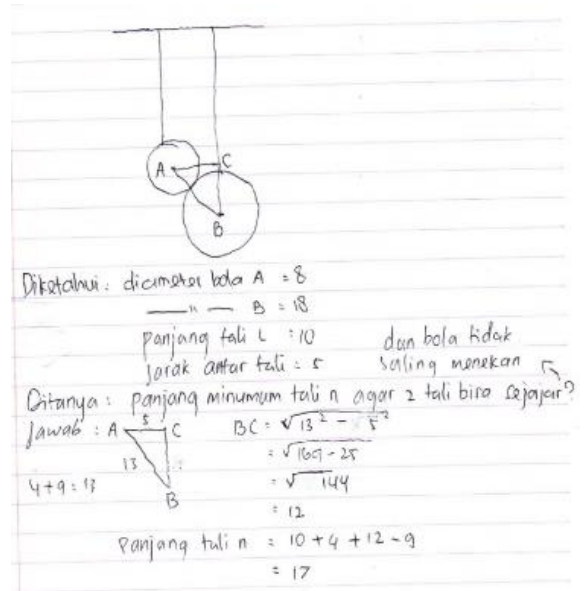 A
C
B
Diketahui : diameter bola A = 8
—— " —— B = 18
panjang tali L : 10
jarak antar tali = 5
dan bola tidak saling menekan
Ditanya : panjang minumum tali n agar 2 tali bisa sejajar?
Jawab : A 5 C
13
B
4 + 9 = 13
BC = √13² - 5²
= √169 - 25
= √144
= 12
Panjang tali n = 10 + 4 + 12 - 9
= 17